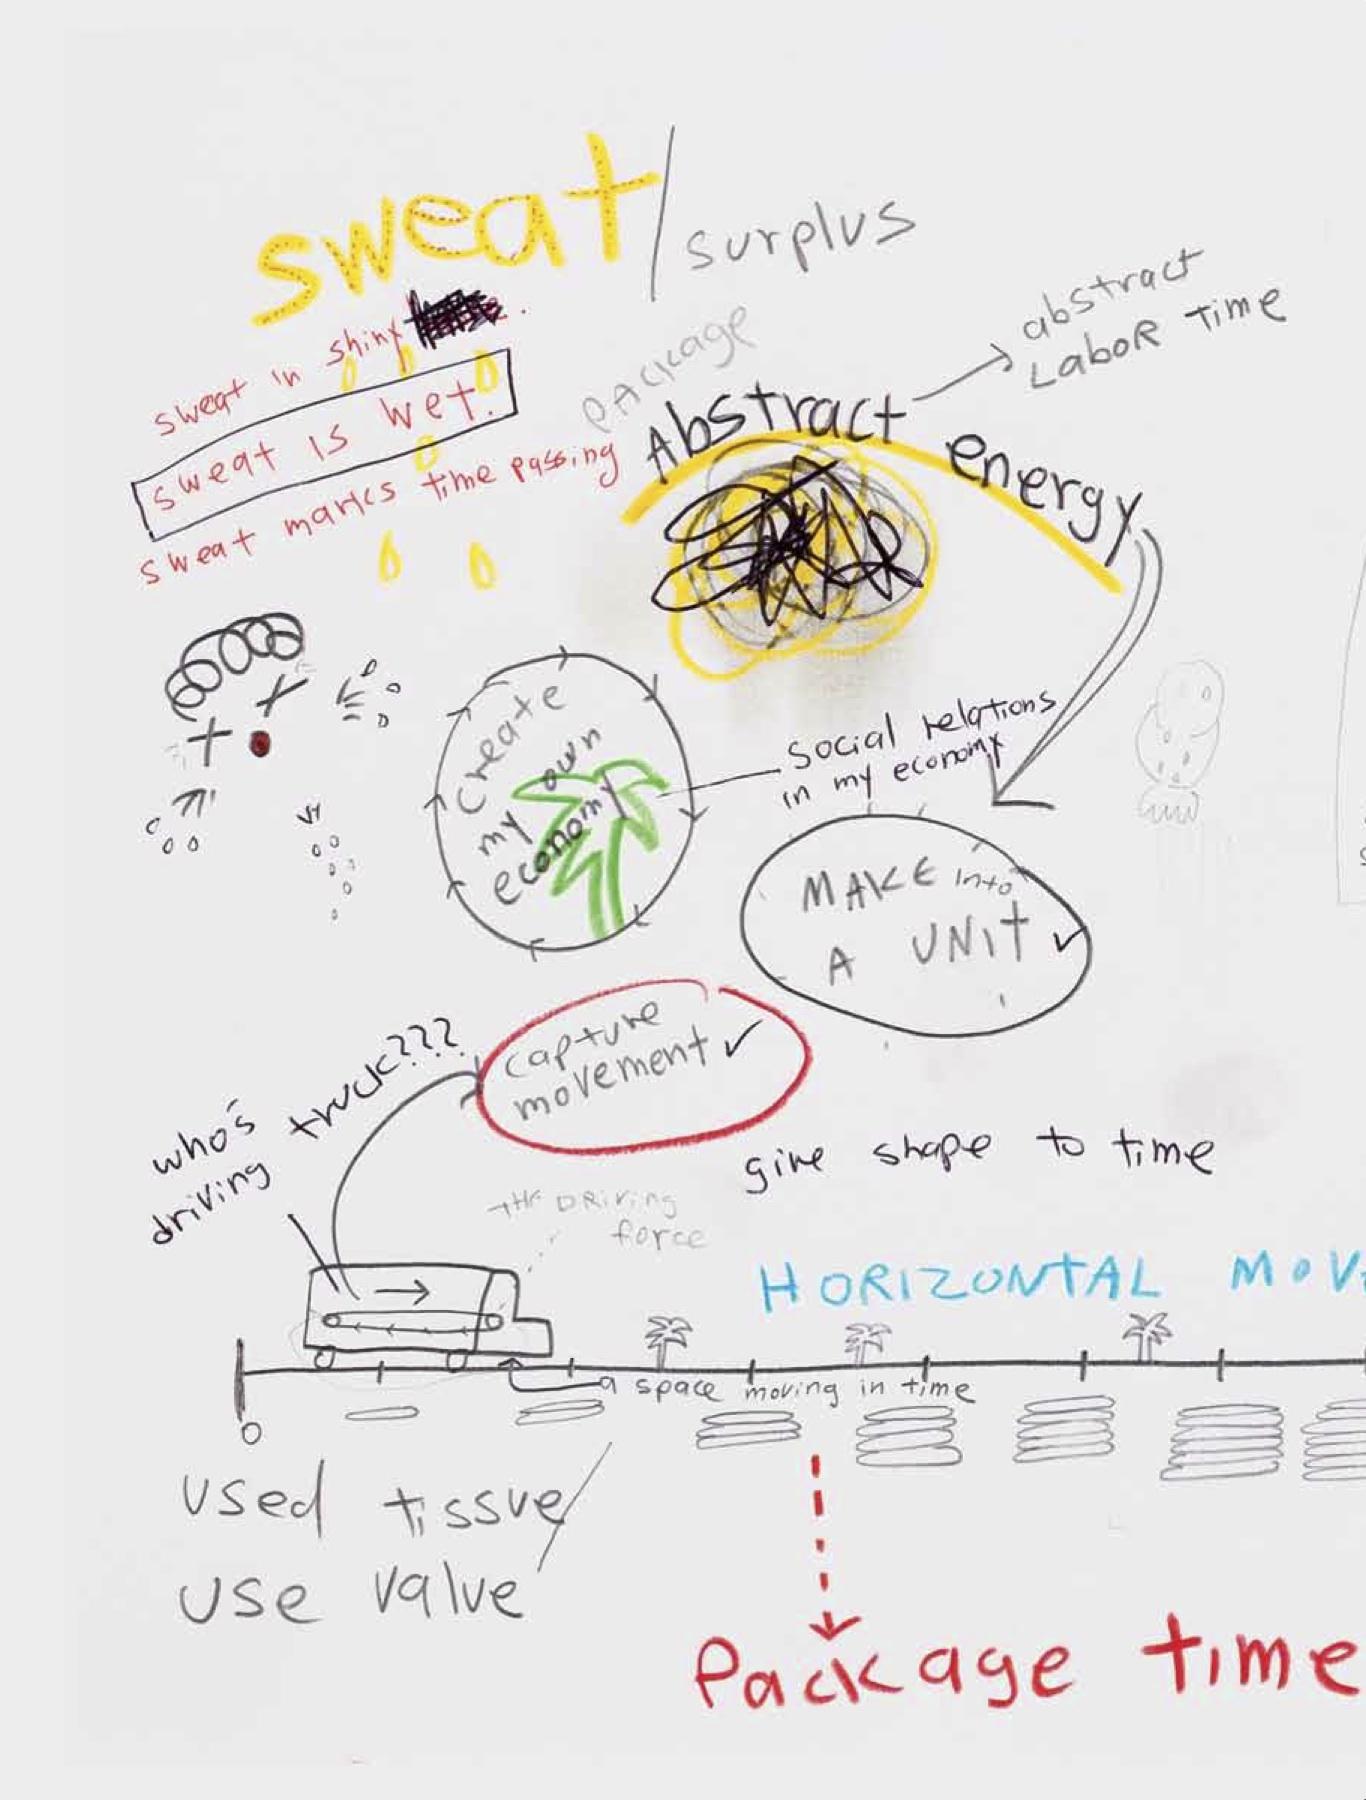 sweat / surplus
sweat in shiny
sweat is wet.
sweat marks time passing
PACKAGE
Abstract energy
abstract
LABOR TIME
create
my own
economy
social relations
in my economy
MAKE into
A UNIT ✓
capture
movement ✓
who's
driving truck???
give shape to time
THE DRIVING
force
HORIZONTAL
a space moving in time
0
used tissue/
use value
Package time